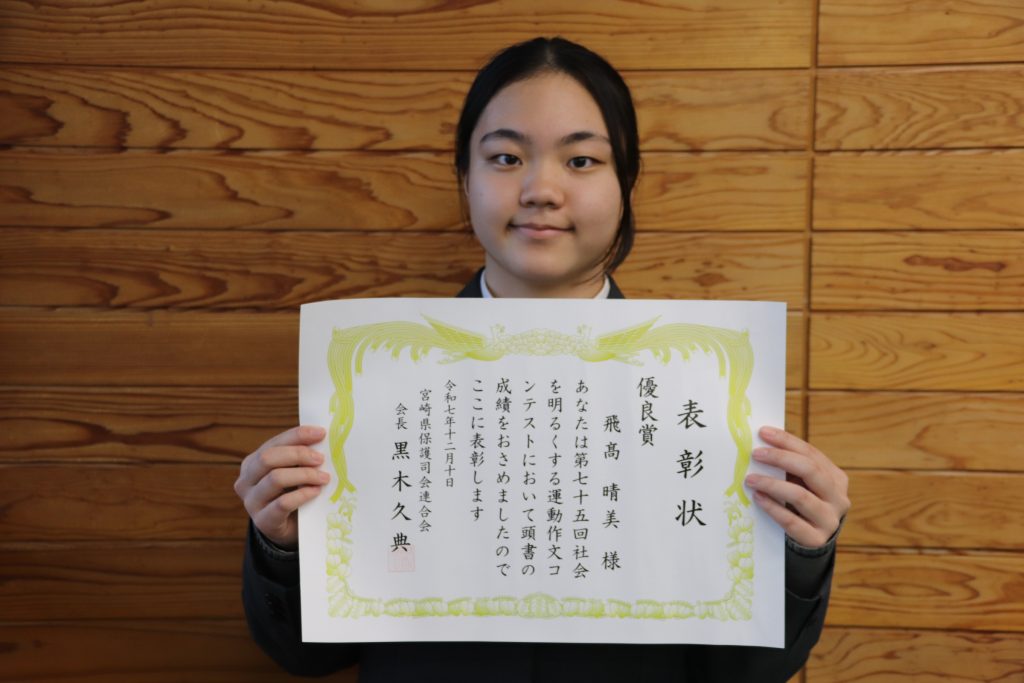 表彰状
優良賞
飛髙晴美様
あなたは第七十五回社会
を明るくする運動作文コ
ンテストにおいて頭書の
成績をおさめましたので
ここに表彰します
令和七年十二月十日
宮崎県保護司会連合会
会長 黒木久典